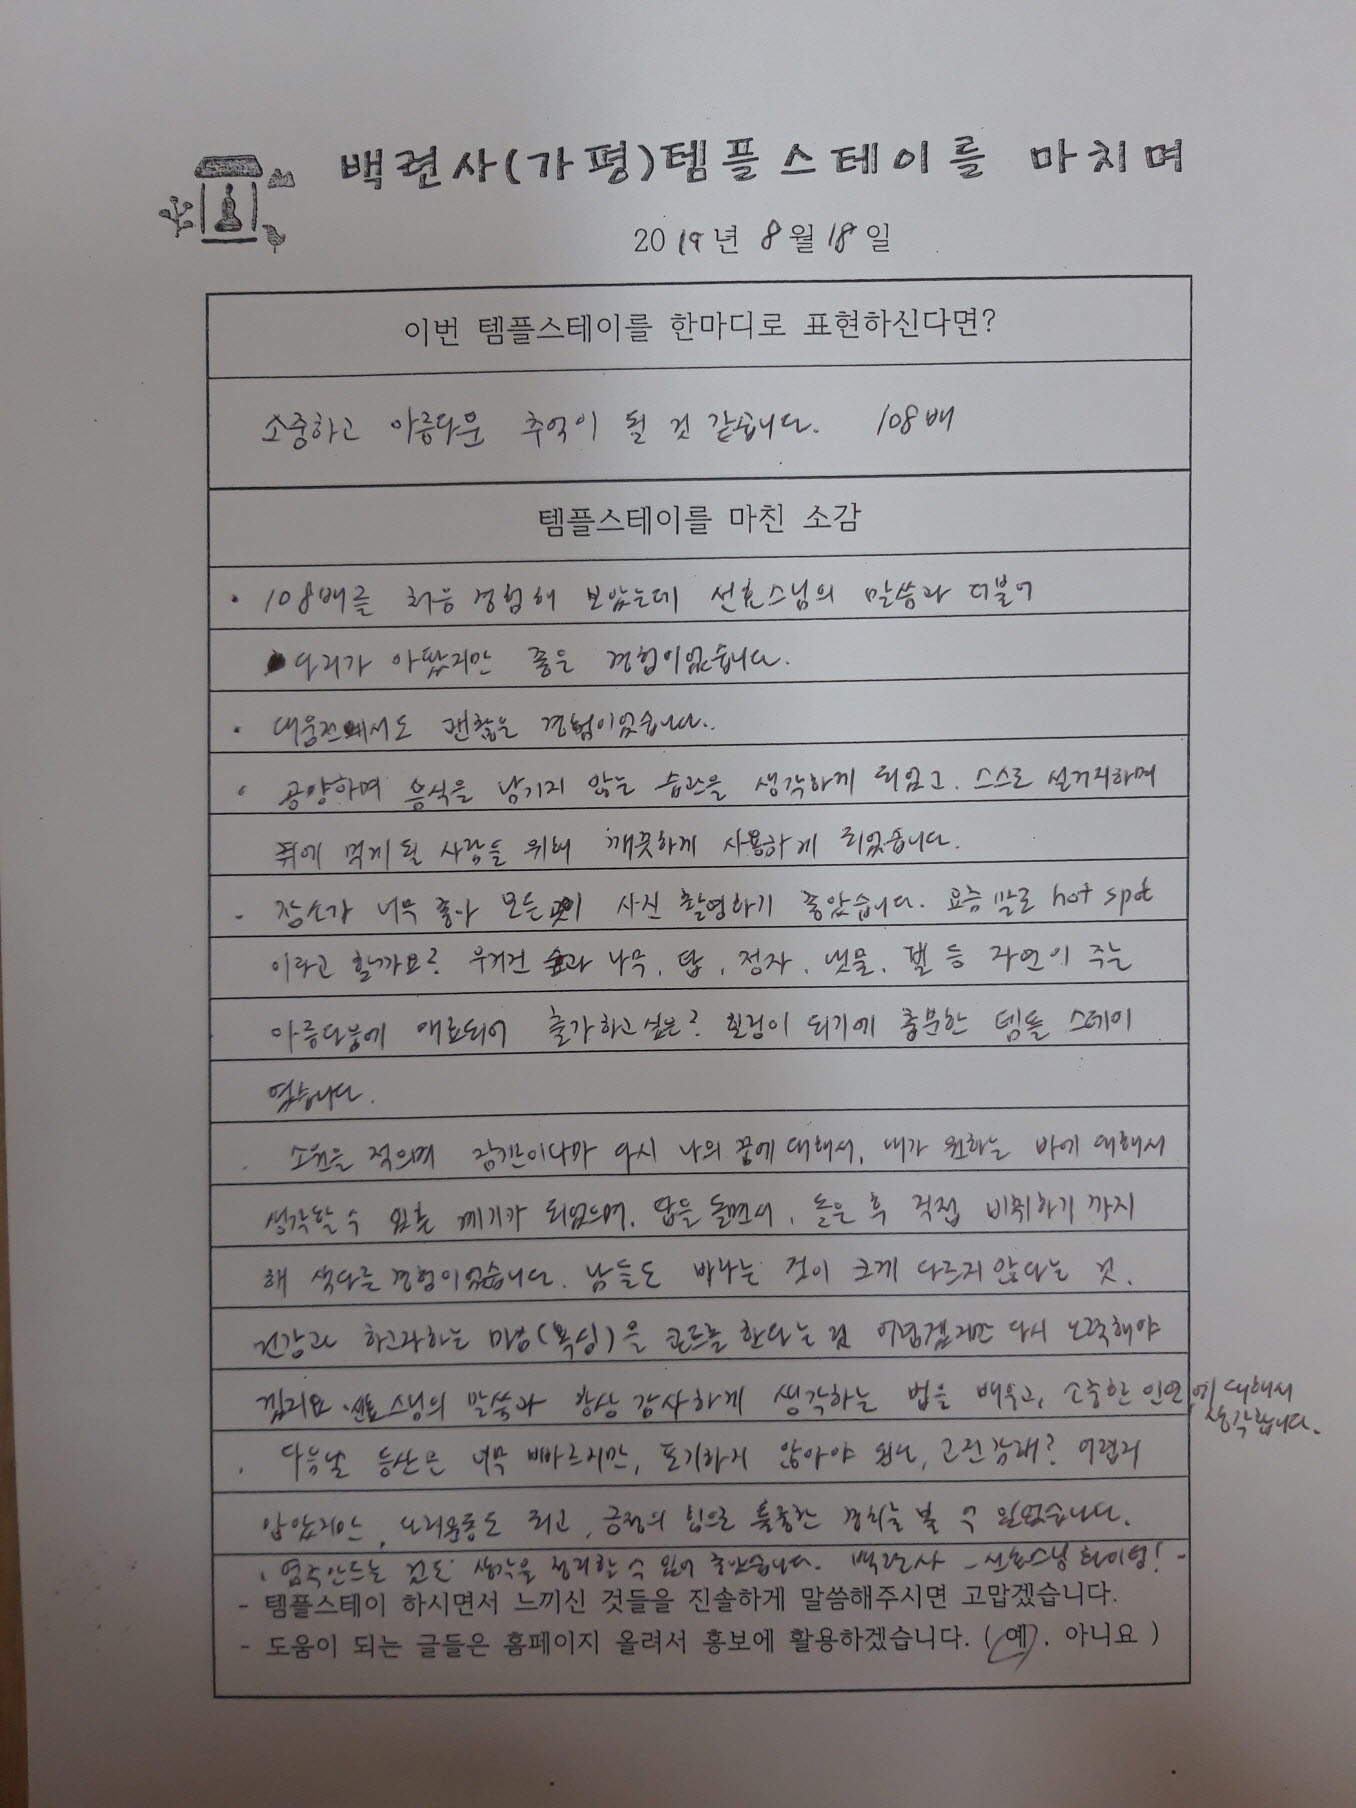 백련사(가평)템플스테이를 마치며
2019년 8월 18일
이번 템플스테이를 한마디로 표현하신다면?
소중하고 아름다운 추억이 될 것 같습니다. 108배
템플스테이를 마친 소감
· 108배를 처음 경험해 보았는데 선효스님의 말씀과 더불어
다리가 아팠지만 좋은 경험이었습니다.
· 대웅전에서도 괜찮은 경험이었습니다.
· 공양하며 음식을 남기지 않는 습관을 생각하게 되었고. 스스로 설거지하며
뒤에 먹게 될 사람들 위해 깨끗하게 사용하게 되었습니다.
· 장소가 너무 좋아 모든곳이 사진 촬영하기 좋았습니다. 요즘 말로 hot spot
이라고 할까요? 우거진 숲과 나무, 탑, 정자, 냇물, 별 등 자연이 주는
아름다움에 매료되어 출가하고 싶은? 힐링이 되기에 충분한 템플 스테이
였습니다.
· 소원을 적으며 잠깐이나마 다시 나의 꿈에 대해서, 내가 원하는 바에 대해서
생각할 수 있는 계기가 되었으며, 탑을 돌면서, 돌은 후 직접 비취하기 까지
해 색다른 경험이었습니다. 남들도 바라는 것이 크게 다르지 않다는 것.
건강과 하고자하는 마음(욕심)을 콘트롤 한다는 것 어렵겠지만 다시 노력해야
겠지요. 선효스님의 말씀과 항상 감사하게 생각하는 법을 배우고, 소중한 인연에 대해서
생각합니다.
· 다음날 등산은 너무 빠르지만, 포기하지 않아야 되나, 고진감래? 어렵지
않았지만, 다리운동도 되고, 긍정의 힘으로 훌륭한 경치를 볼 수 있었습니다.
· 염주만드는 것도 생각을 정리할 수 있어 좋았습니다. 백련사 - 선효스님 화이팅! -
- 템플스테이 하시면서 느끼신 것들을 진솔하게 말씀해주시면 고맙겠습니다.
- 도움이 되는 글들은 홈페이지 올려서 홍보에 활용하겠습니다. ( 예 . 아니요 )